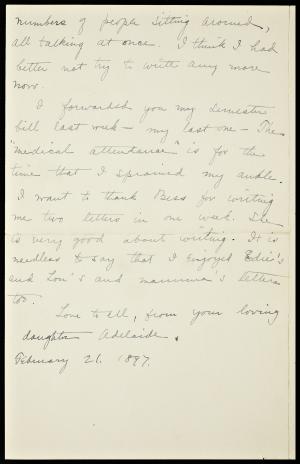 numbers of people sitting around,
all talking at once. I think I had
better not try to write any more
now.
I forwarded you my semester
bill last week – my last one – The
"medical attendance" is for the
time that I sprained my ankle.
I want to thank Bess for writing
me two letters in one week. She
is very good about writing. It is
needless to say that I enjoyed Edie's
and Lon's and mamma's letters
too.
Love to all, from your loving
daughter Adelaide.
February 21. 1897.